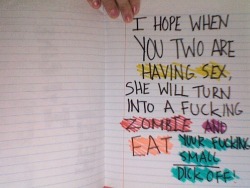 I HOPE WHEN
YOU TWO ARE
HAVING SEX,
SHE WILL TURN
INTO A FUCKING
ZOMBIE AND
EAT YOUR FUCKING
SMALL
DICK OFF!